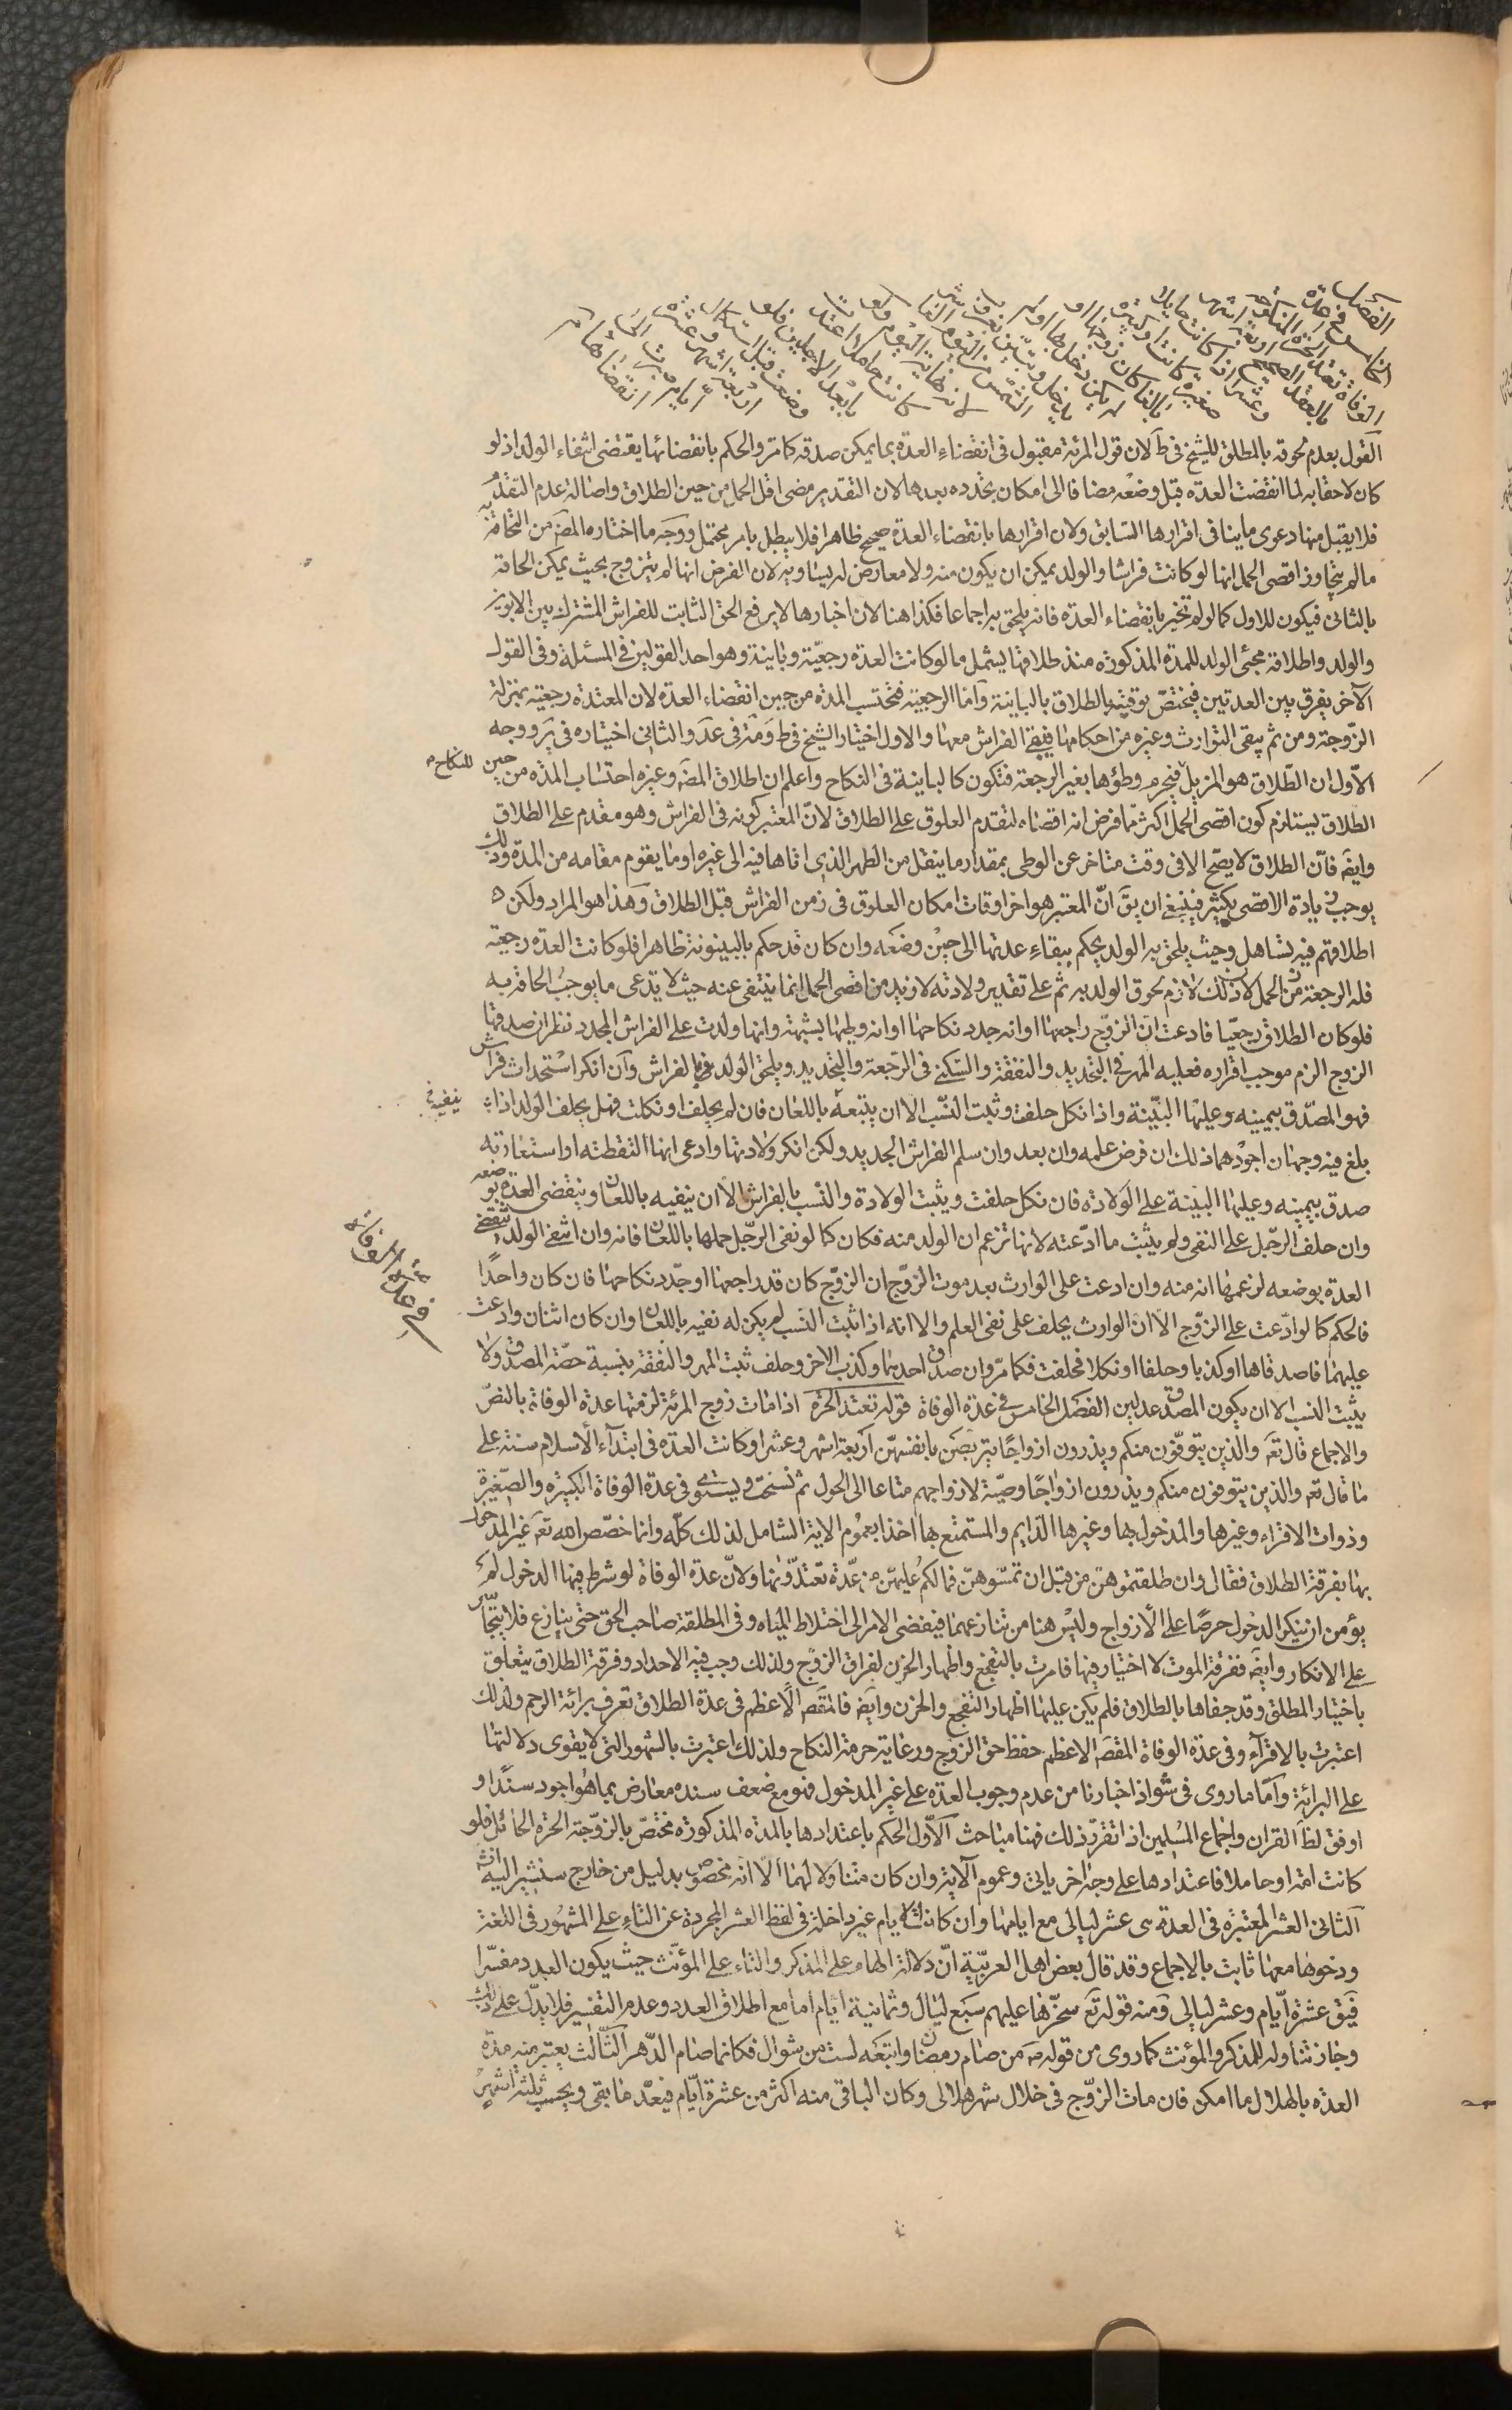 الفصل
الخامس في عدة
الوفاة تعتد الحرة المنكوحة
بالعقد الصحيح اربعة اشهر
وعشرا اذا كانت حايلا
صغيرة كانت او كبيرة
بالغا كان زوجها او
لم يكن دخل بها او لم
يدخل وتبين بغروب
الشمس من اليوم العاشر
لانه نهاية اليوم ولو
كانت حاملا اعتدت
بابعد الاجلين فلو
وضعت قبل استكمال
اربعة اشهر وعشرة
ايام صبرت الى
انقضائها
القول بعدم لحوقه بالمطلق للشيخ في ط لان قول المرئة مقبول في انقضاء العدة بما يمكن صدقه كما مر والحكم بانقضائها يقتضى انتفاء الولد اذ لو
كان لاحقا به لما انقضت العدة قبل وضعه مضافا الى امكان تجدده بعدها لان التقدير مضى اقل الحمل من حين الطلاق واصالة عدم التقدم
فلا يقبل منها دعوى ما ينافى اقرارها السابق ولان اقرارها بانقضاء العدة صحيح ظاهرا فلا يبطل بامر محتمل ووجه ما اختاره المصَ من التحاقه به
ما لم يتجاوز اقصى الحمل انها لو كانت فراشا والولد يمكن ان يكون منه ولا معارض له يساويه لان الفرض انها لم تتزوج بحيث يمكن الحاقه
بالثانى فيكون للاول كما لو لم تخبر بانقضاء العدة فانه يلحق به اجماعا فكذا هنا لان اخبارها لا يرفع الحق الثابت للفراش المشترك بين الابوين
والولد واطلاقه مجئى الولد للمدة المذكورة منذ طلاقها يشمل ما لو كانت العدة رجعيّة وباينة وهو احد القولين في المسئلة وفى القول
الآخر يفرق بين العدتين فيختصّ توقيته بالطلاق بالباينة وامّا الرجعية فتحتسب المدة من حين انقضاء العدة لان المعتدة رجعية بمنزلة
الزّوجة ومن ثم يبقى التوارث وغيره من احكامها فيبقى الفراش معها والاول اختيار الشيخ في ط ومثله في عَد والثانى اختياره في يَر ووجه
الاّول ان الطّلاق هو المزيل للنكاح فيحرم وطؤها بغير الرجعة فتكون كالباينة في النكاح واعلم ان اطلاق المصَ وغيره احتساب المدة من حين
الطلاق يستلزم كون اقصى الحمل اكثر مما فرض انه اقصاه لتقدم العلوق على الطلاق لانّ المعتبر كونه في الفراش وهو مقدم على الطلاق
وايضَ فانّ الطلاق لا يصّح الا في وقت متاخر عن الوطى بمقدار ما ينتقل من الطهر الذى اتاها فيه الى غيره او ما يقوم مقامه من المدة وذلك
يوجب زيادة الاقصى بكثير فينبغى ان يقَ انّ المعتبر هو اخر اوقات امكان العلوق في زمن الفراش قبل الطلاق وهذا هو المراد ولكن
اطلاقهم فيه تساهل وحيث يلحق به الولد يحكم ببقاء عدتها الى حين وضعه وان كان قد حكم بالبينونة ظاهرا فلو كانت العدة رجعية
فله الرجعة زمن الحمل لان ذلك لازم لحوق الولد به ثم على تقدير ولادته لازيد من اقصى الحمل انما ينتفى عنه حيث لا يدعى ما يوجب الحاقه به
فلو كان الطلاق رجعيّا فادعت انّ الزوّج راجعها او انه جدد نكاحها او انه وطيها بشبهة وانها ولدت على الفراش المجدد نظر ان صدقها
الزوج الزم موجب اقراره فعليه المهر في التجديد والنفقة والسكنى في الرّجعة والتجديد ويلحق الولد في بالفراش وان انكر استحداث فراش
فهو المصّدق بيمينه وعليها البيّنة واذا نكل حلفت وثبت النّسب الا ان ينتبعه باللعان فان لم يحلف او نكلت فهل يحلف الولد اذا
بلغ فيه وجهان اجودهما ذلك ان فرض علمه وان بعد وان سلم الفراش الجديد ولكن انكر ولادتها وادعى انها التقطته او استعارته
صدق بيمينه وعليها البينة على الولادة فان نكل حلفت ويثبت الولادة والنسب بالفراش الاّ ان ينفيه باللعان وينقضى العدة بوضعه
وان حلف الرجّل على النفى ولم يثبت ما ادّعته لانها تزعم ان الولد منه فكان كما لو نفى الرجّل حملها باللعان فانه وان انتفى الولد تنقضى
العدة بوضعه لزعمها انه منه وان ادعت على الوارث بعد موت الزوّج ان الزوّج كان قد راجعها او جدّد نكاحها فان كان واحدًا
فالحكم كما لو ادّعت على الزوّج الاّ انّ الوارث يحلف على نفى العلم والا انه اذا ثبت النسب لم يكن له نفيه باللعان وان كان اثنان وادعت
عليهما فاصدقاها او كذبا وحلفا او نكلا فحلفت فكما مرّ وان صدق احدهما وكذب الاخر وحلف ثبت المهر والنفقة بنسبة حصّة المصدق ولا
يثبت النسب الا ان يكون المصدق عدلين الفصل الخامس في عدة الوفاة قوله تعتد الحرة اذا مات زوج المرئة لزمتها عدة الوفاة بالنصّ
والاجماع قال تعَ والذين يتوفّون منكم ويذرون ازواجًا يتربّصن بانفسهّن اربعة اشهر وعشرا وكانت العدة في ابتداء الاسلام سنة على
ما قال تعَ والذين يتوفون منكم ويذرون ازواجًا وصيّة لازواجهم متاعا الى الحول ثم نسخت ويستوى في عدة الوفاة الكبيرة والصّغيرة
وذوات الاقراء وغيرها والمدخول بها وغيرها الدّايم والمستمتع بها اخذا بعموم الاية الشامل لذلك كلّه وانما خصّص الله تعَ غير المدخول
بها بفرقة الطلاق فقال وان طلقتموهنّ من قبل ان تمسّوهنّ فما لكم عليهنّ من عدّة تعتدّونها ولانّ عدة الوفاة لو شرط فيها الدخول لم
يؤمن ان ينكر الدخول حرصًا على الازواج وليس هنا من تنازعهما فيفضى الامر الى اختلاط المياه وفى المطلقة صاحب الحق حتى ينازع فلا يتجّاسر
على الانكار وايضَ ففرقة الموت لا اختيار فيها فامرت بالتفجع واظهار الحزن لفراق الزوّج ولذلك وجب فيه الاحداد وفرقة الطلاق يتعلّق
باختيار المطلق وقد جفاها بالطلاق فلم يكن عليها اظهار التفجّع والحزن وايضَ فالمقصَ الاعظم في عدة الطلاق تعرف برائة الرحم ولذلك
اعتبرت بالاقراء وفى عدة الوفاة المقصَ الاعظم حفظ حق الزوج ورعاية حرمة النكاح ولذلك اعتبرت بالشهور التى لا يقوى دلالتها
على البرائة وامّا ما روى في شواذ اخبارنا من عدم وجوب العدة على غير المدخول فهو مع ضعف سنده معارض بما هو اجود سندًا و
اوفق لظَ القران واجماع المسلمين اذا تقرّر ذلك فهنا مباحث الاّول الحكم باعتدادها بالمدة المذكورة مختصّ بالزوّجة الحرة الحائل فلو
كانت امة او حاملا فاعتدادها على وجه اخر ياتى وعموم الآية وان كان متناولا لهما الاّ انه مخصوص بدليل من خارج سنشير اليه انشَ
الثانى العشر المعتبرة في العدة هى عشر ليالى مع ايامها وان كانت الايام غير داخلة في لفظ العشر المجردة عن التاء على المشهور في اللغة
ودخولها معها ثابت بالاجماع وقد قال بعض اهل العربيّة انّ دلالة الهاء على المذكر والتاء على المؤنّث حيث يكون العدد مفسّرا
فيَق عشرة ايّام وعشر ليالى ومنه قوله تعَ سخّرها عليهم سبع ليال وثمانية ايّام اما مع اطلاق العدد وعدم التفسير فلا يدلّ على ذلك
وجاز تناوله للمذكر والمؤنث كما روى من قوله صَ من صام رمضان واتبعه بست من شوال فكانما صام الدّهر الثّالث يعتبر منه مدة
العدة بالهلال ما امكن فان مات الزوّج في خلال شهر هلالى وكان الباقى منه اكثر من عشرة ايّام فيعدّ ما بقى ويحسب ثلثة اشهر
للنكاح
ينفيه
في عدة الوفاة